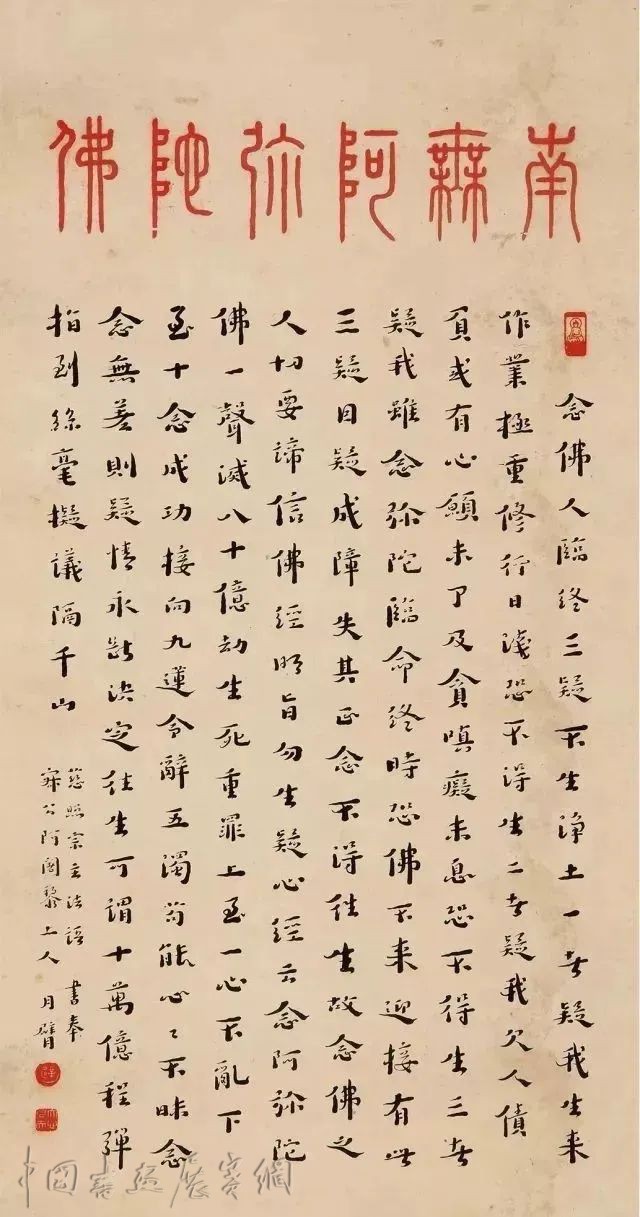 南無阿弥陀佛
念佛人臨終三疑不生淨土一者疑我生来
作業極重修行日淺恐不得生二者疑我欠人債
負或有心願未了及貪嗔癡未息恐不得生三者
疑我雖念弥陀臨命終時恐佛不来迎接有此
三疑因疑成障失其正念不得往生故念佛之
人切要諦信佛經明旨勿生疑心經云念阿弥陀
佛一聲滅八十億劫生死重罪上至一心不亂下
至十念成功接向九蓮令辭五濁苟能心〻不昧念
念無差則疑情永斷決定往生可謂十萬億程彈
指到絲毫擬議隔千山
慈照宗主法語 書奉
寂公阿闍黎上人 月臂
中國書法展賽網